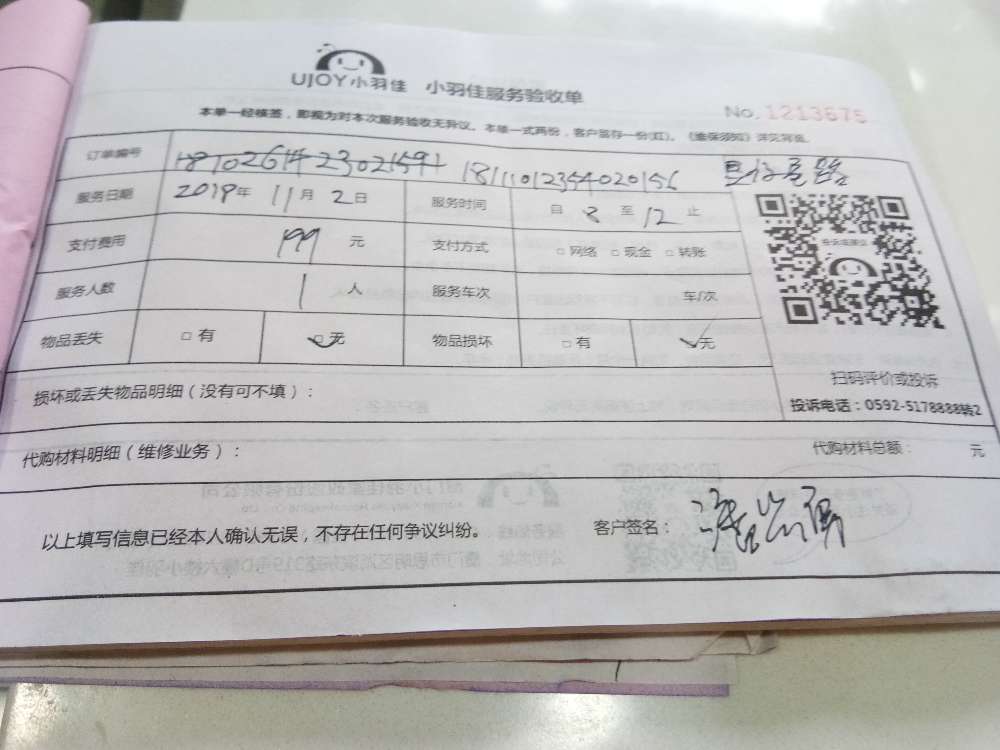 UJOY小羽佳 小羽佳服务验收单
No. 1213675
本单一经核签，即视为对本次服务验收无异议。本单一式两份，客户留存一份(红)。《维保须知》详见背面。
订单编号 1811012354020156
服务日期 2018年 11月 2日 服务时间 自 8 至 12 止
投诉或建议
支付费用 199 元 支付方式 □网络 □现金 □转账
服务人数 1 人 服务车次 车/次
物品丢失 □有 □无 物品损坏 □有 □无
扫码评价或投诉
损坏或丢失物品明细（没有可不填）：
投诉电话：0592-5178888转2
代购材料明细（维修业务）： 代购材料总额： 元
以上填写信息已经本人确认无误，不存在任何争议纠纷。 客户签名：